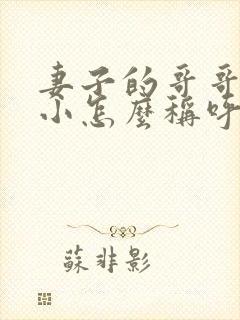 妻子的哥哥
小怎麼稱呼
蘇非影